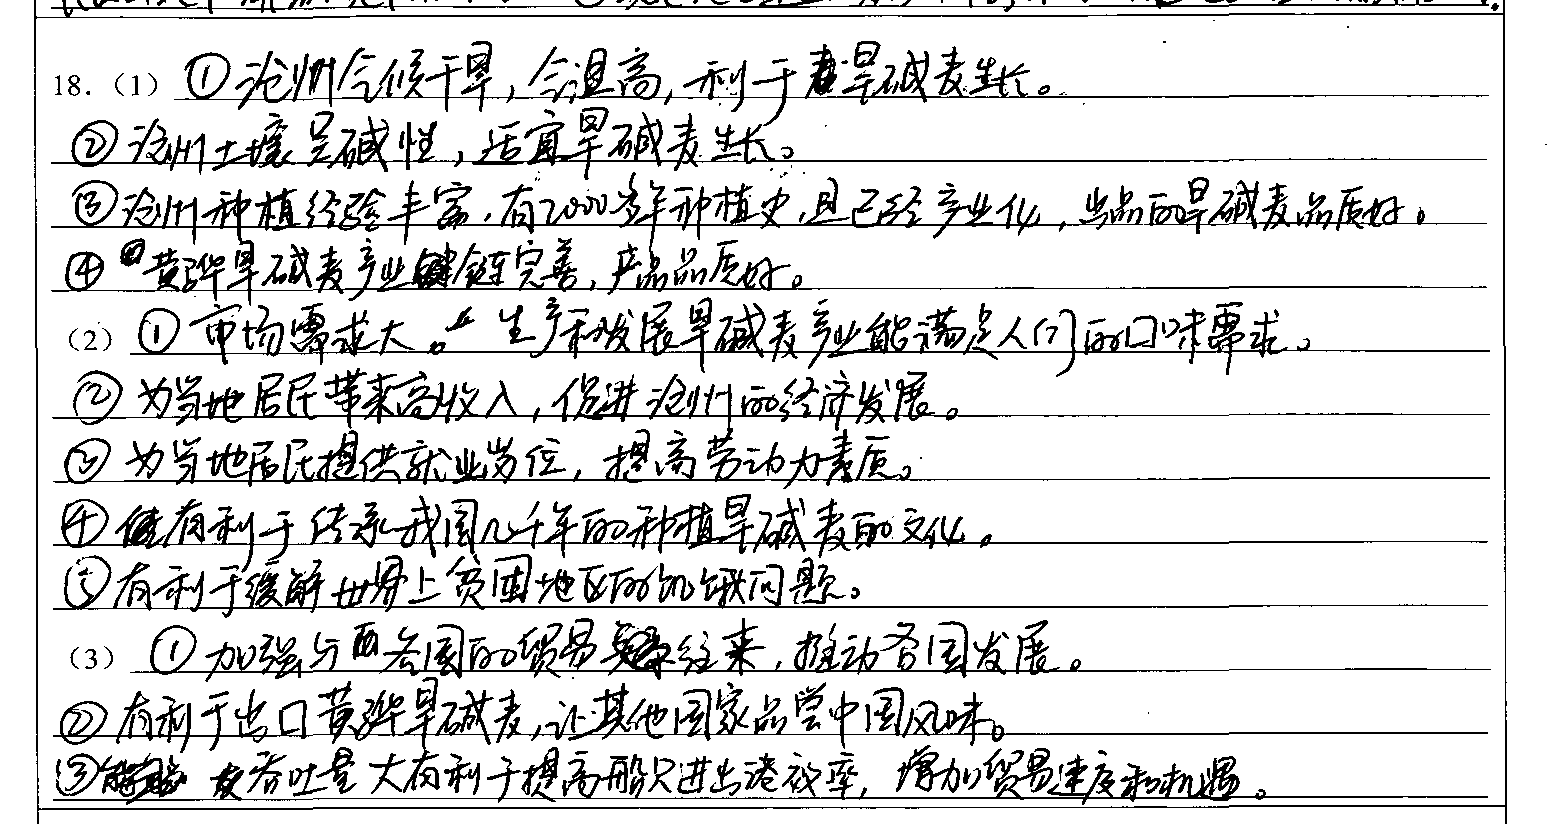 18.（1）①沧州气候干旱，气温高，利于旱碱麦生长。
②沧州土壤呈碱性，适宜旱碱麦生长。
③沧州种植经验丰富，有2000多年种植史，且已经产业化，出品的旱碱麦品质好。
④黄骅旱碱麦产业链完善，产品品质好。
（2）①市场需求大。生产和发展旱碱麦产业能满足人们的口味需求。
②为当地居民带来高收入，促进沧州的经济发展。
③为当地居民提供就业岗位，提高劳动力素质。
④有利于传承我国几千年的种植旱碱麦的文化。
⑤有利于缓解世界上贫困地区的饥饿问题。
（3）①加强与各国的贸易往来，推动各国发展。
②有利于出口黄骅旱碱麦，让其他国家品尝中国风味。
③吞吐量大有利于提高船只进出港效率，增加贸易速度和机遇。